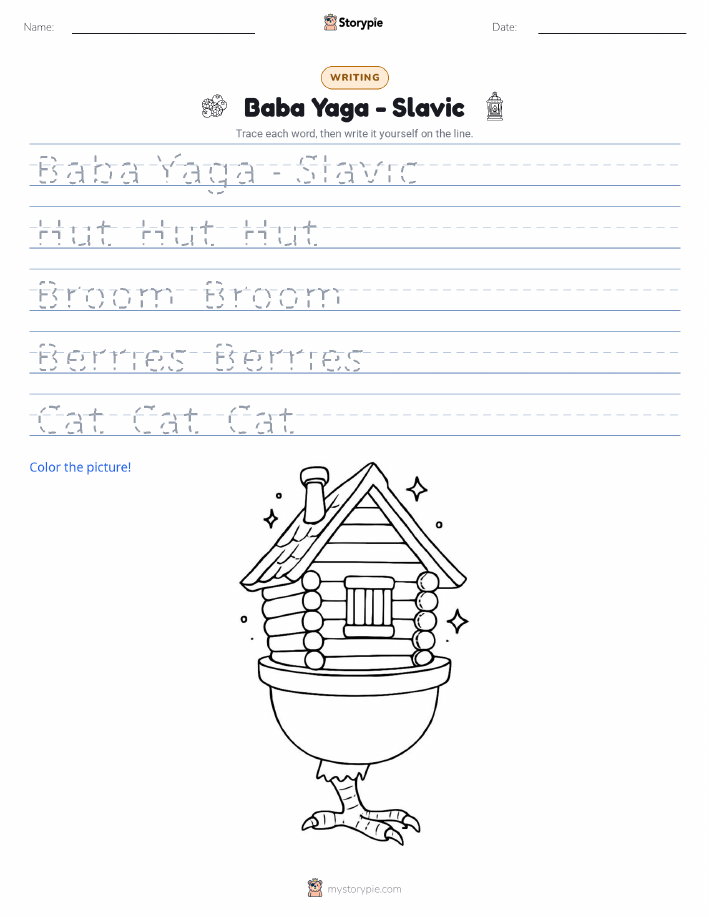 Name:
Storypie
Date:
WRITING
Baba Yaga - Slavic
Trace each word, then write it yourself on the line.
Baba Yaga - Slavic
Hut Hut Hut
Broom Broom
Berries Berries
Cat Cat Cat
Color the picture!
mystorypie.com